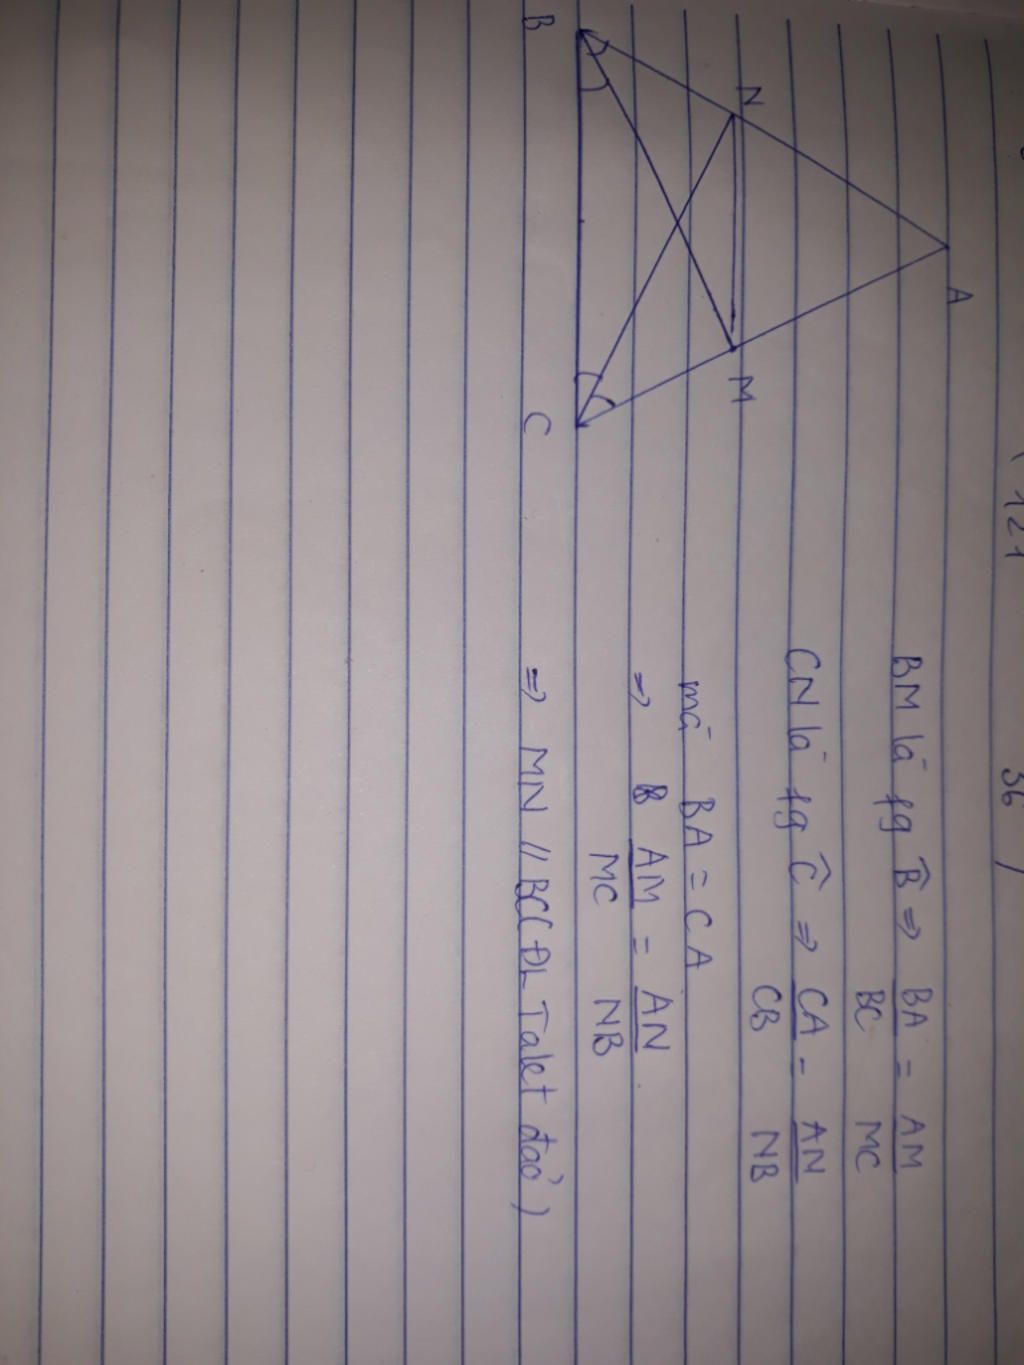 121
36
A
N
M
B
C
BM là fg B̂ ⇒ BA/BC = AM/MC
CN là fg Ĉ ⇒ CA/CB = AN/NB
mà BA = CA
⇒ AM/MC = AN/NB
⇒ MN // BC (ĐL Talet đảo)